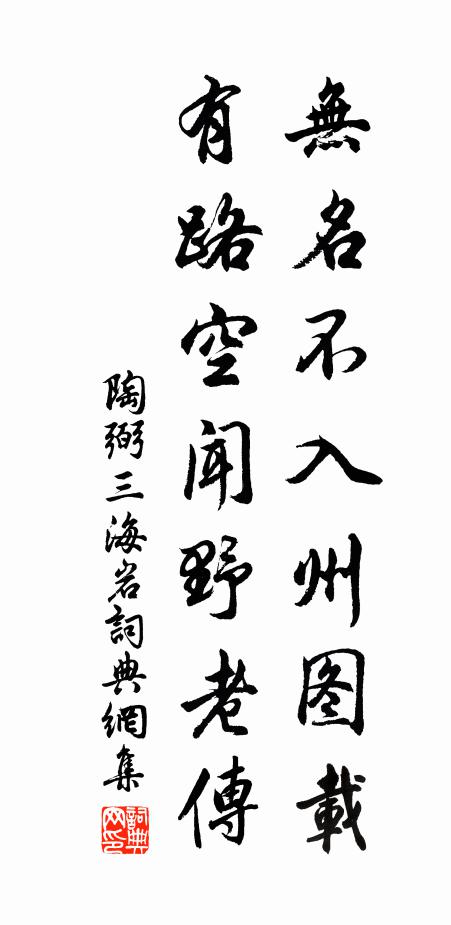 無名不入州图載
有路空闻野老傳
陶弼三海岩詞典網集
詞典网印